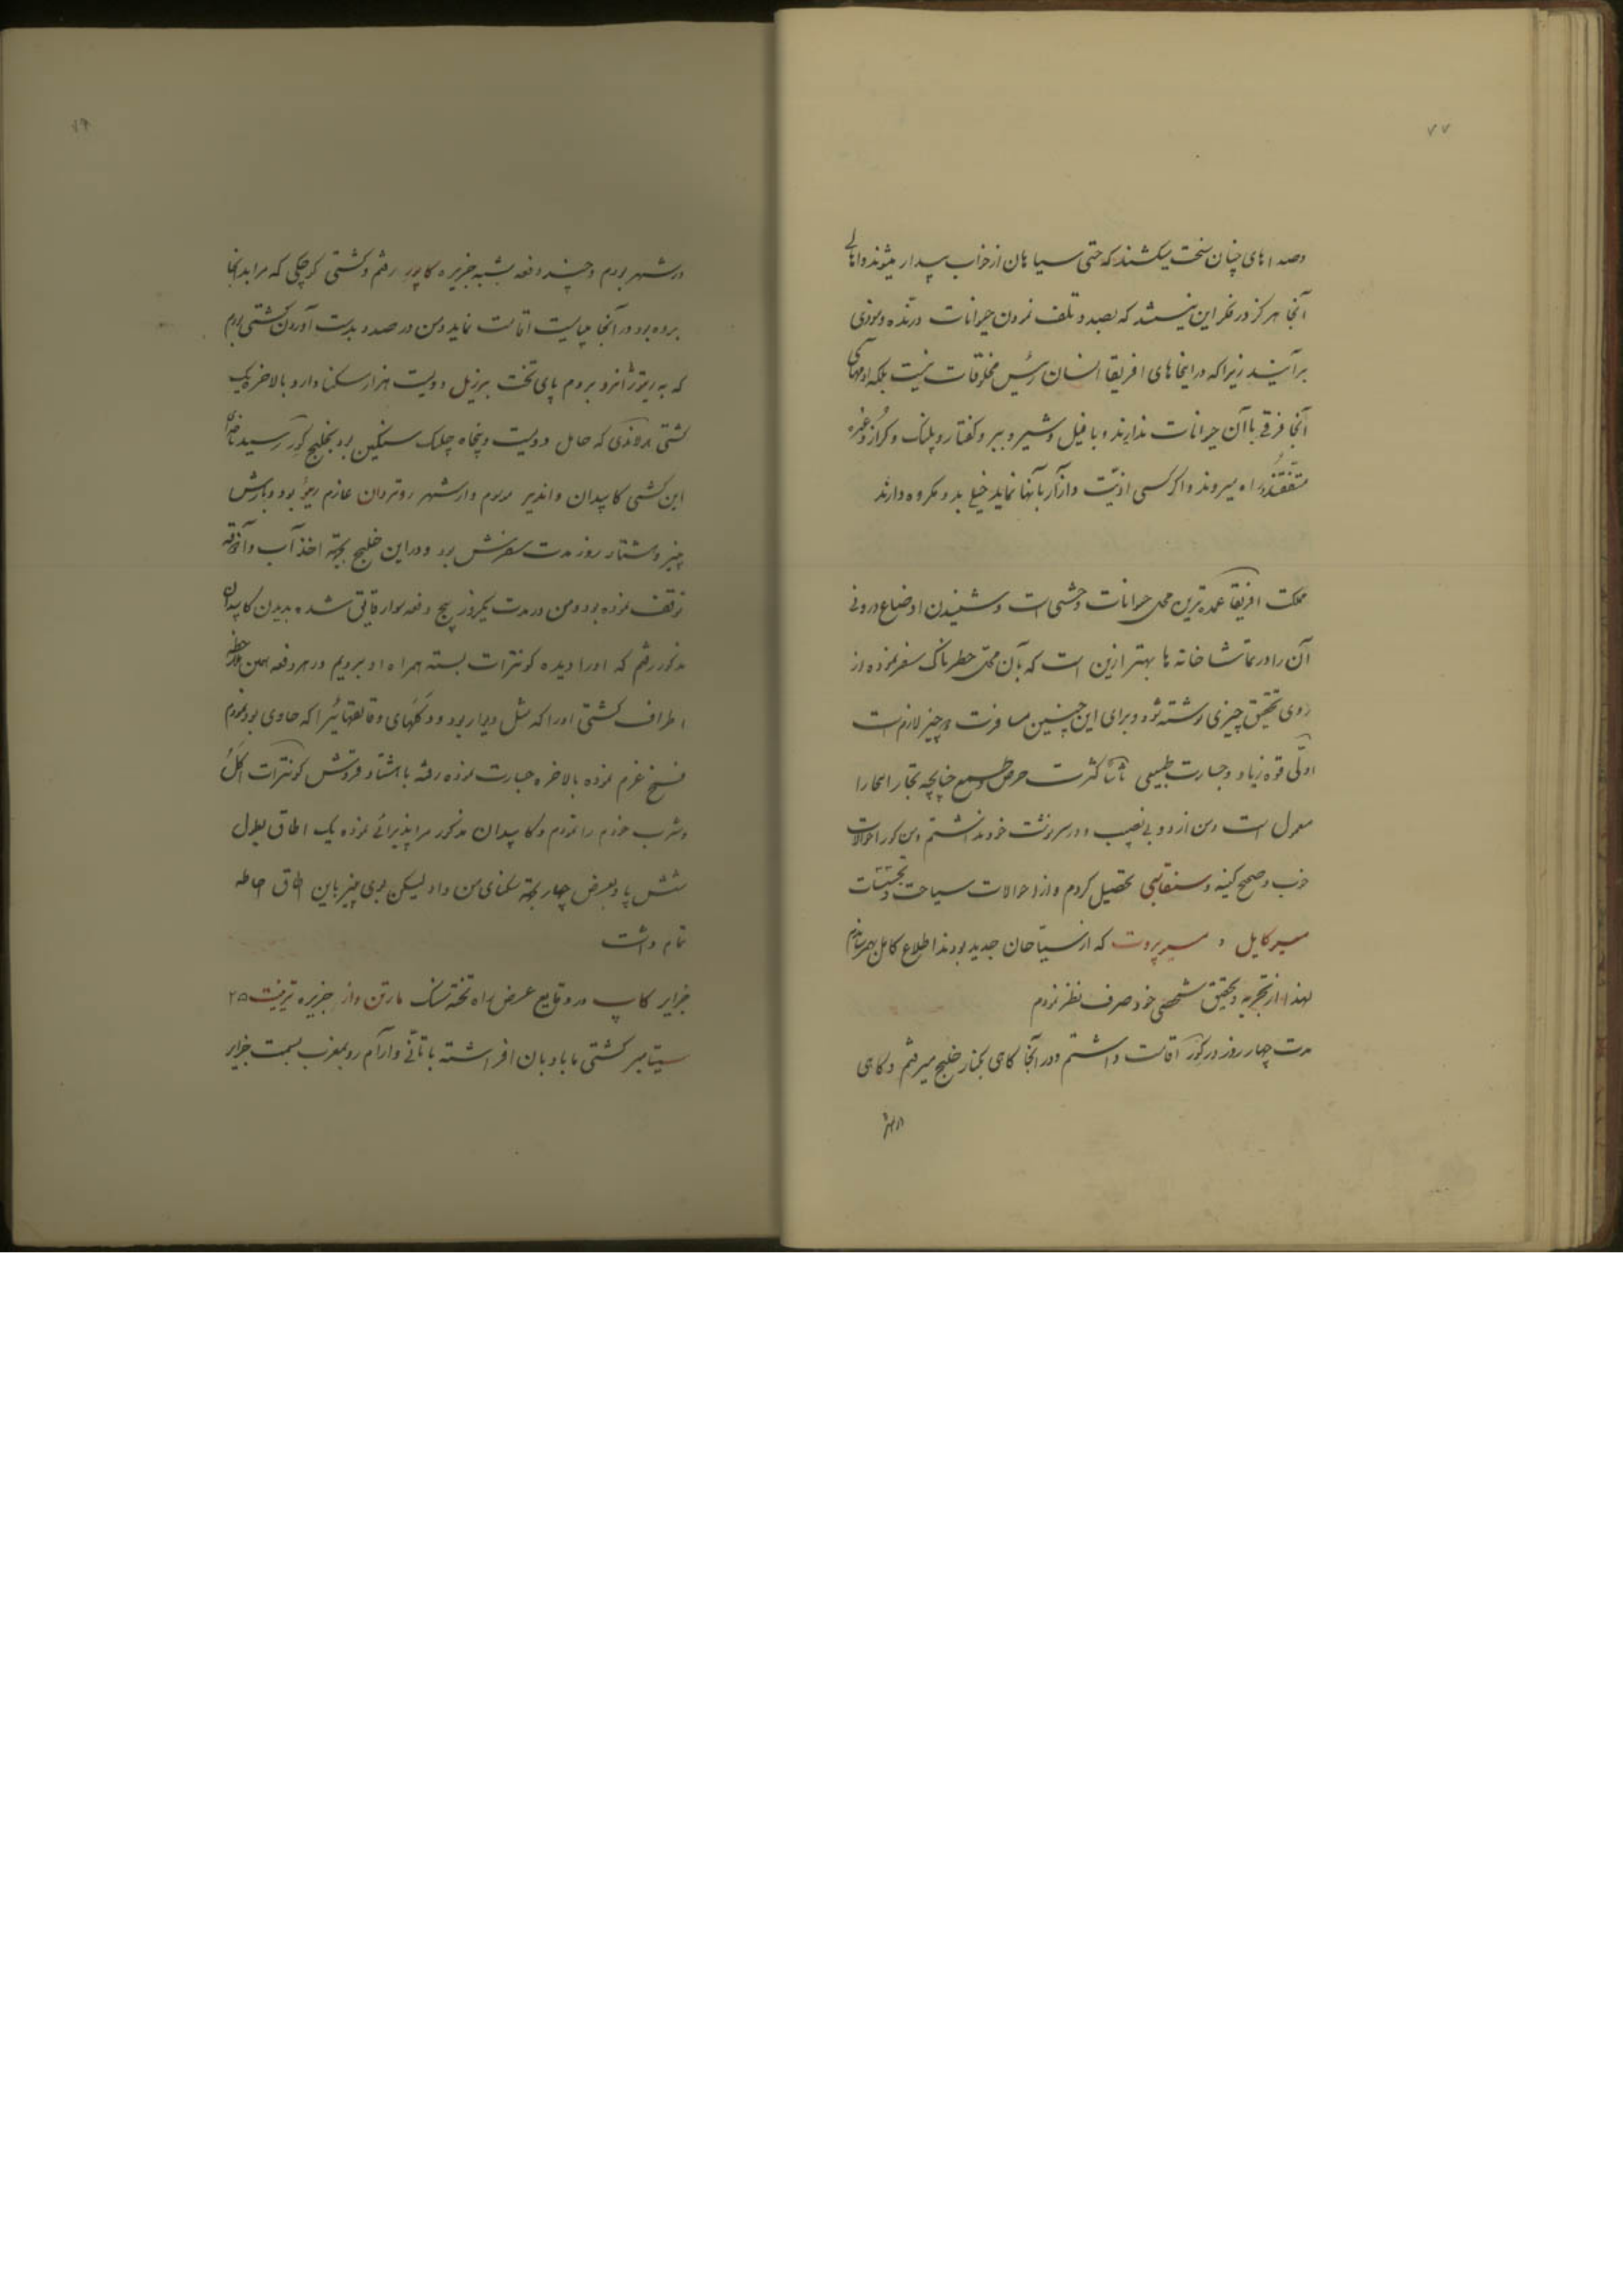 ۷۷
وصداهای چنان سخت میکشند که حتی سیاهان از خواب بیدار میشوند و اهالی
آنجا هرگز در فکر این نیستند که بصید و تلف نمودن حیوانات درنده و موذی
برآیند زیرا که در اینجاهای افریقا انسان رئیس مخلوقات نیست بلکه آدمهای
آنجا فرقی با آن حیوانات ندارند و با فیل و شیر و ببر و کفتار و پلنک و کراز و غیره
متفقند راه میروند و اگر کسی اذیت و آزار بآنها نماید خیلی بد و مکروه دارند
مملکت افریقا عمده ترین محل حیوانات وحشی است و شنیدن اوضاع درونی
آن را در تماشا خانه ها بهتر ازین است که بآن محل خطرناک سفر نموده از
روی تحقیق چیزی نوشته شود و برای این چنین مسافرت دو چیز لازم است
اولی قوه زیاد و جسارت طبیعی ثانیا کثرت حرص و طمع چنانچه تجار آنجا را
معمول است و من از دو بی نصیب و در سرنوشت خود نداشتم و من کور احوالات
خوب و صحیح کینه و سنقانبی تحصیل کردم و از احوالات سیاحت و تجسسات
سیرکایل و سیرپروت که از سیاحان جدید بودند اطلاع کامل بهم رساندم
لهذا از تجربه و تحقیق شخصی خود صرف نظر نمودم
مدت چهار روز در کور اقامت داشتم و در آنجا کاهی بکنار خلیج میرفتم و کاهی
در شهر
در شهر بودم و چند دفعه بشبه جزیره کاپور رفتم و کشتی کوچکی که مرا بدانجا
برده بود در آنجا میبایست اقامت نماید و من در صدد بدست آوردن کشتی بودم
که به ریوژانرو بروم پای تخت برزیل دویست هزار سکنا دارد بالاخره یک
کشتی هولاندی که حامل دویست و پنجاه چلک سنکین بود بخلیج کور رسید ناخدای
این کشتی کاپیدان واندیر موسوم و از شهر روتردان عازم ریو بود و بارش
پنیر و هشتاد روز مدت سفرش بود و در این خلیج بجهة اخذ آب و آذوقه
توقف نموده بود و من در مدت یکروز پنج دفعه سوار قایق شده بدیدن کاپیدان
مذکور رفتم که اورا دیده کونترات بسته همراه او برویم در هر دفعه همین ملاحظه
اطراف کشتی اورا که مثل دیوار بود و دکلهای و قایقهائیرا که حاوی بود نمودم
فسخ عزم نموده بالاخره جسارت نموده رفته با هشتاد قروش کونترات اکل
و شرب خودم را نمودم و کاپیدان مذکور مرا پذیرائی نموده یک اطاق بطول
شش پا و بعرض چهار بجهة سکنای من داد لیکن بوی پنیر باین اطاق احاطه
تمام داشت
جزایر کاپ مردوقایع عرض راه تخته سنک مارتن واز جزیره ترینت ۲۵
سپتامبر کشتی ما بادبان افراشته با تأنی و آرام رو بمغرب بسمت جزایر